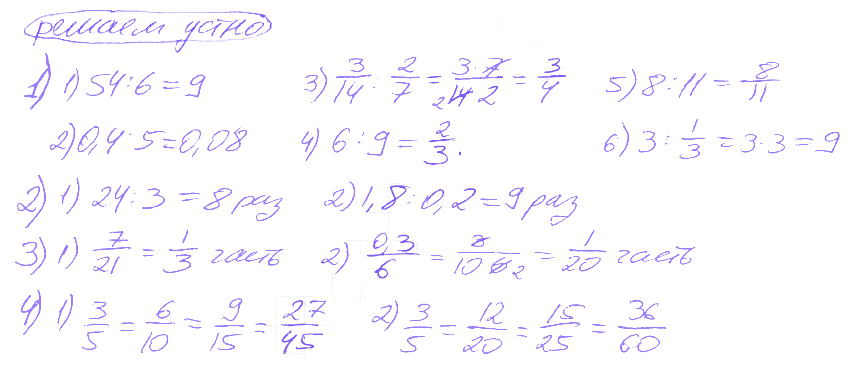 решаем устно
1) 1) 54:6=9 3) 3/14 : 2/7 = 3·7/14·2 = 3/4 5) 8:11 = 8/11
2) 0,4:5=0,08 4) 6:9 = 2/3. 6) 3 : 1/3 = 3·3 = 9
2) 1) 24:3 = 8 раз 2) 1,8:0,2=9 раз
3) 1) 7/21 = 1/3 часть 2) 0,3/6 = 3/10·6 2 = 1/20 часть
4) 1) 3/5 = 6/10 = 9/15 = 27/45 2) 3/5 = 12/20 = 15/25 = 36/60